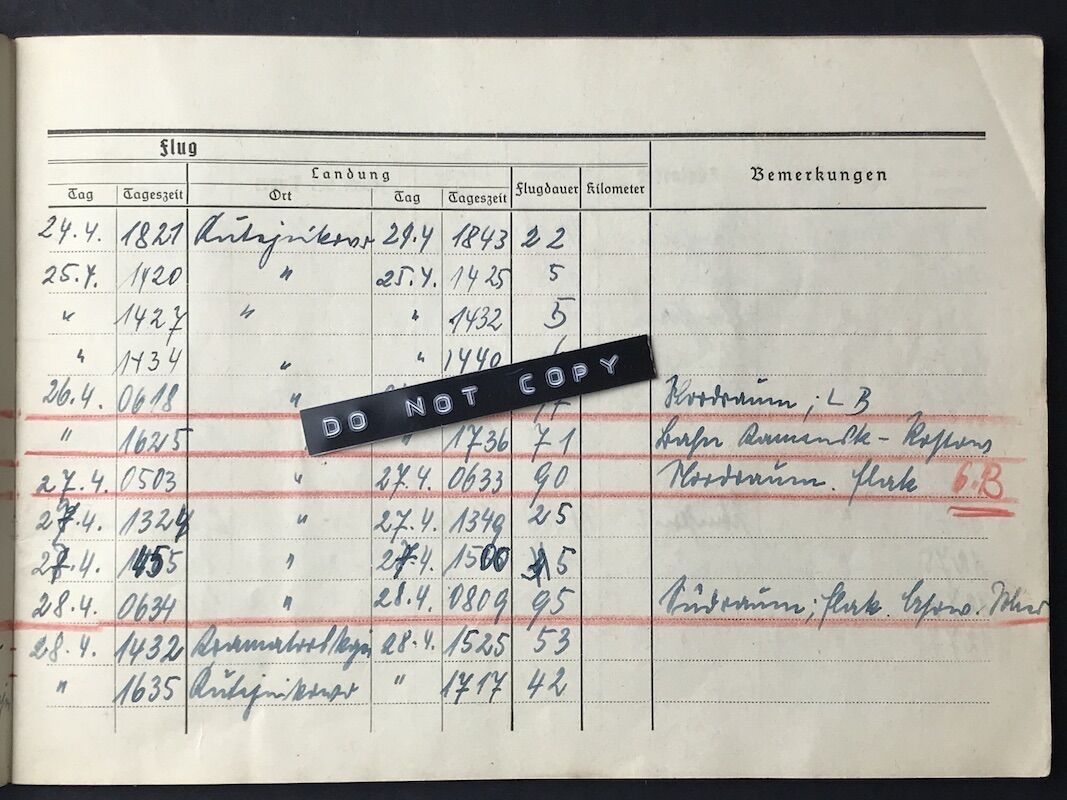 Flug
Landung
Bemerkungen
Tag Tageszeit Ort Tag Tageszeit Flugdauer Kilometer
24.4. 1821 Kutejnikowo 24.4 1843 22
25.4. 1420 " 25.4. 1425 5
" 1427 " " 1432 5
" 1434 " " 1440
26.4. 0618 " Nordraum; LB
DO NOT COPY
" 1625 " 1736 71 Bahn Kamensk - Rostow
27.4. 0503 " 27.4. 0633 90 Nordraum. Flak 6.B
27.4. 1324 " 27.4. 1349 25
27.4. 1455 " 27.4. 1500 5
28.4. 0634 " 28.4. 0809 95 Südraum; Flak.
28.4. 1432 Kramatorskaja 28.4. 1525 53
" 1635 Kutejnikowo " 1717 42